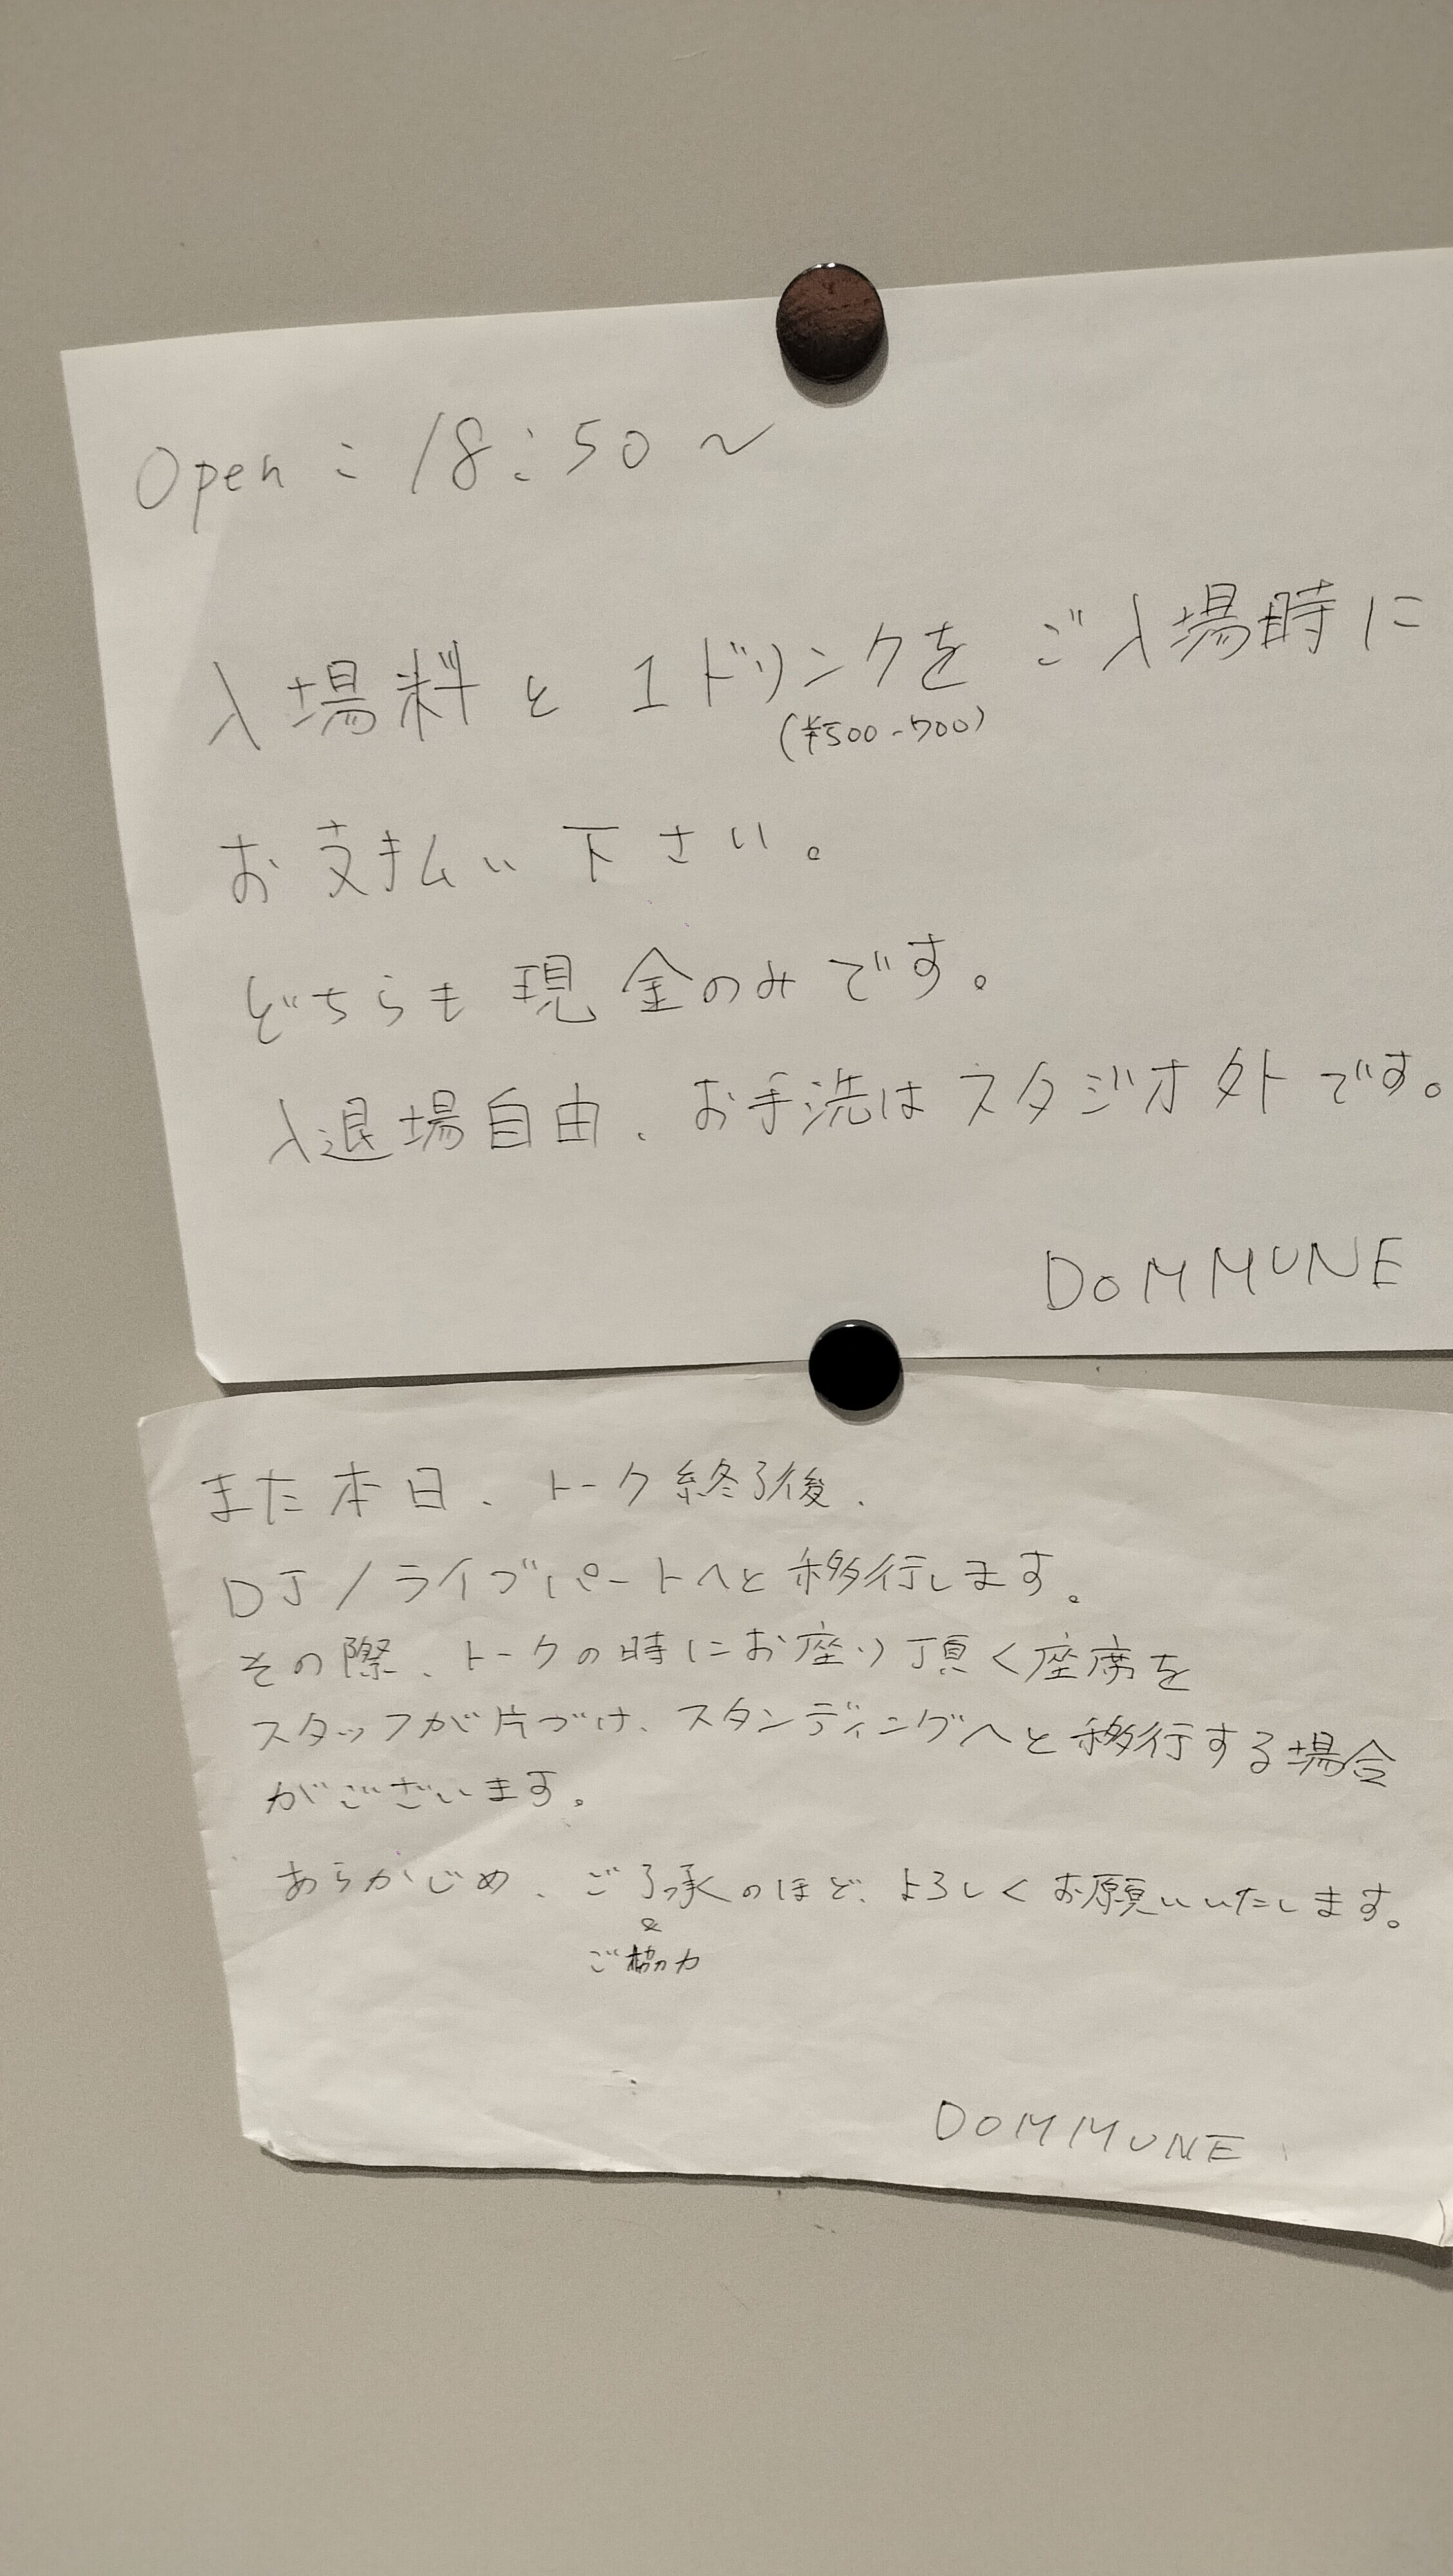 Open : 18:50 〜
入場料と 1ドリンクを ご入場時に
(¥500-700)
お支払い下さい。
どちらも現金のみです。
入退場自由、お手洗はスタジオ外です。
DOMMUNE
また本日、トーク終了後、
DJ/ライブパートへと移行します。
その際、トークの時にお座り頂く座席を
スタッフが片づけ、スタンディングへと移行する場合
がございます。
あらかじめ、ご了承のほど、よろしくお願いいたします。
&
ご協力
DOMMUNE